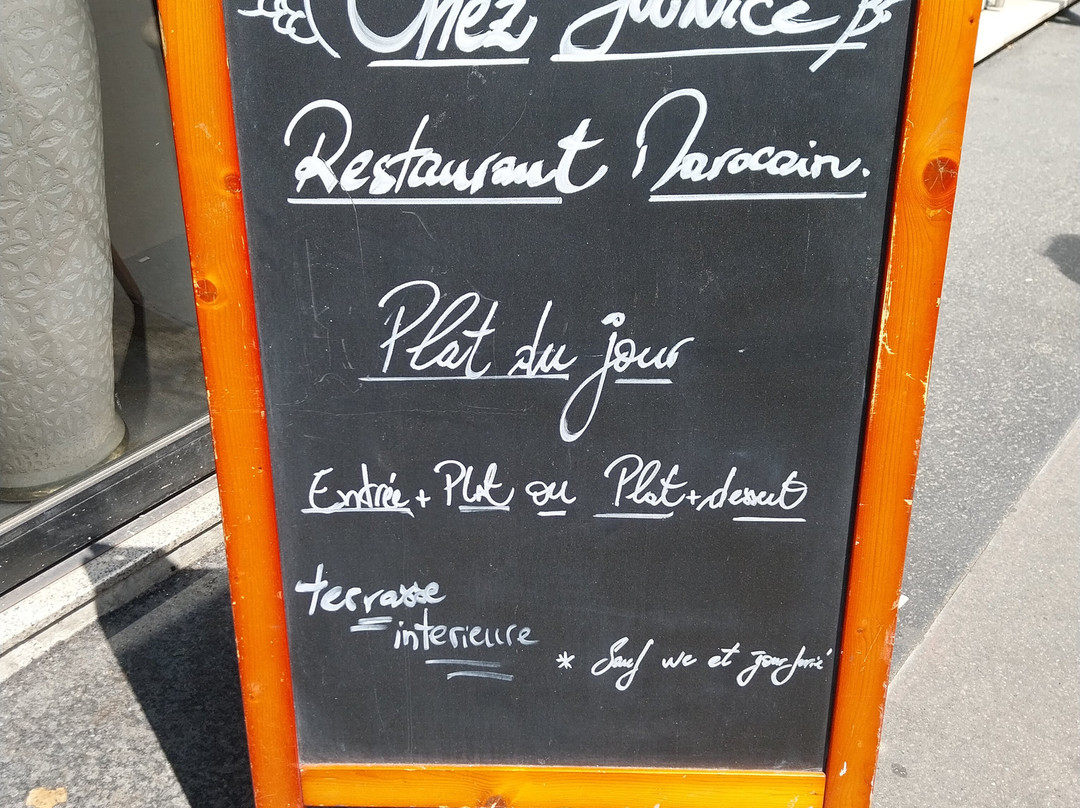 Chez
Restaurant Marocain.
Plat du jour
Entrée + Plat ou Plat + dessert
terrasse
interieure
* Sauf we et jour ferié